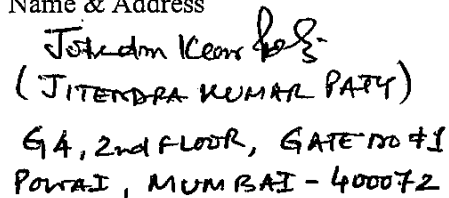 Name & Address
(JITENDRA KUMAR PATY)
G4, 2nd FLOOR, GATE NO #1
POWAI, MUMBAI - 400072